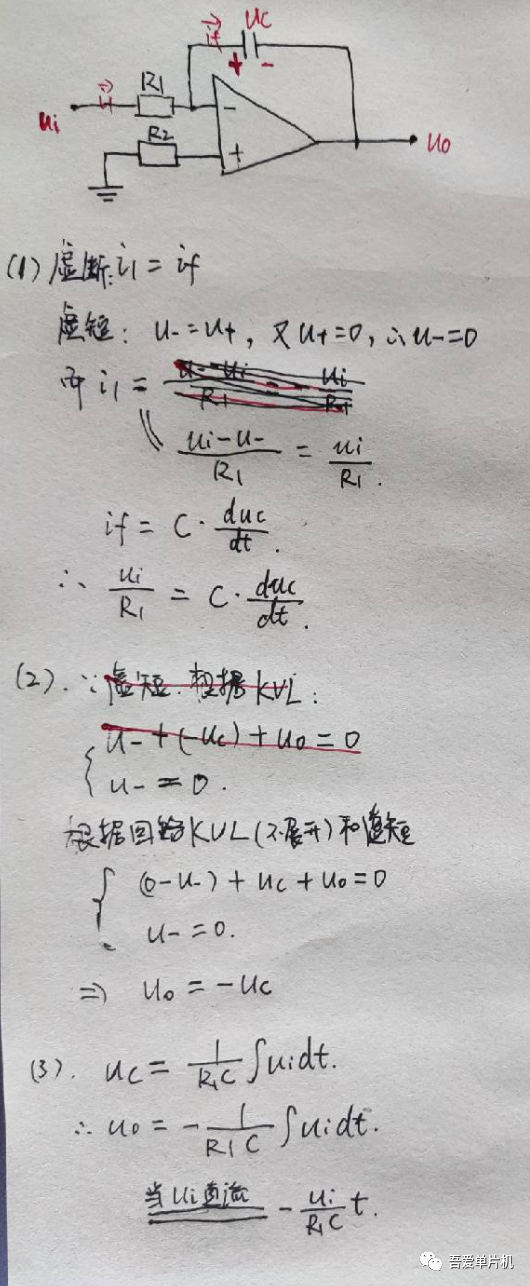 i⃗f uc
R1
i⃗1
ui
-
+ -
R2
+
uo
(1) 虚断: i1 = if
虚短: u- = u+, 又u+=0, ∴u-=0
而 i1 =
(ui-u-)/R1 = ui/R1.
if = C · duc/dt.
∴ ui/R1 = C · duc/dt.
(2). ∵虚短. 根据KVL:
u- + (-uc) + uo = 0
u- = 0.
根据回路KVL(不展开)和虚短
(0-u-) + uc + uo = 0
u- = 0.
⇒ uo = -uc
(3). uc = 1/R1C ∫uidt.
∴ uo = - 1/R1C ∫uidt.
当ui直流 - ui/R1C t.
吾爱单片机